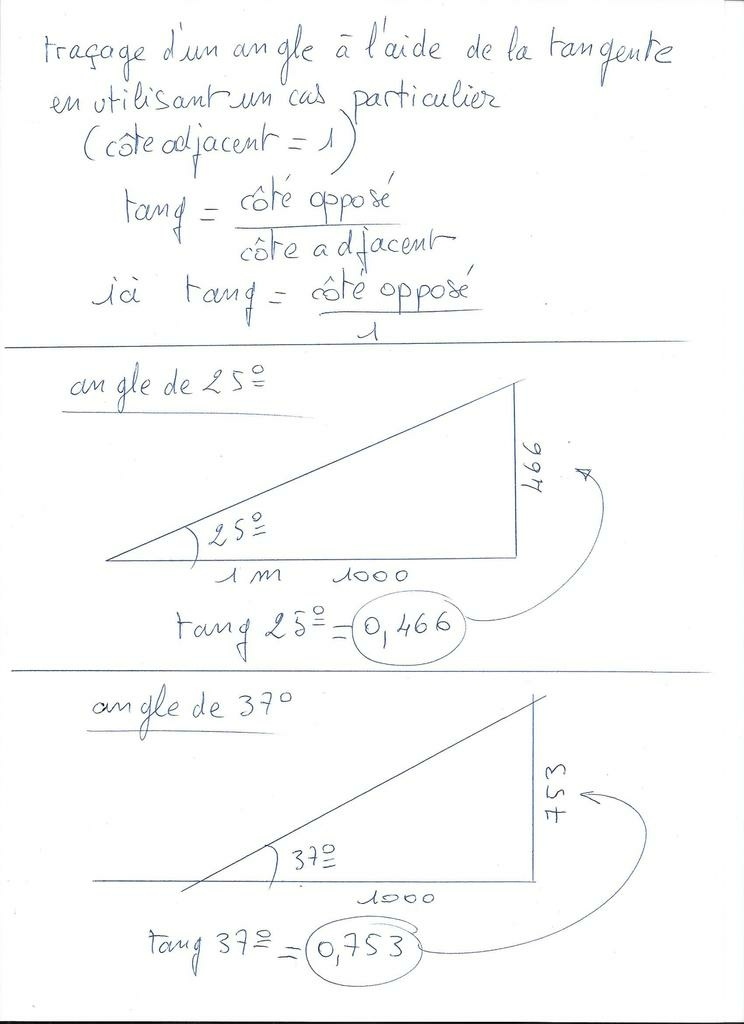 traçage d'un angle à l'aide de la tangente
en utilisant un cas particulier
(côte adjacent = 1)
tang = côté opposé
côte adjacent
ici tang = côté opposé
1
angle de 25º
466
25º
1 m 1000
tang 25º = 0,466
angle de 37º
753
37º
1000
tang 37º = 0,753